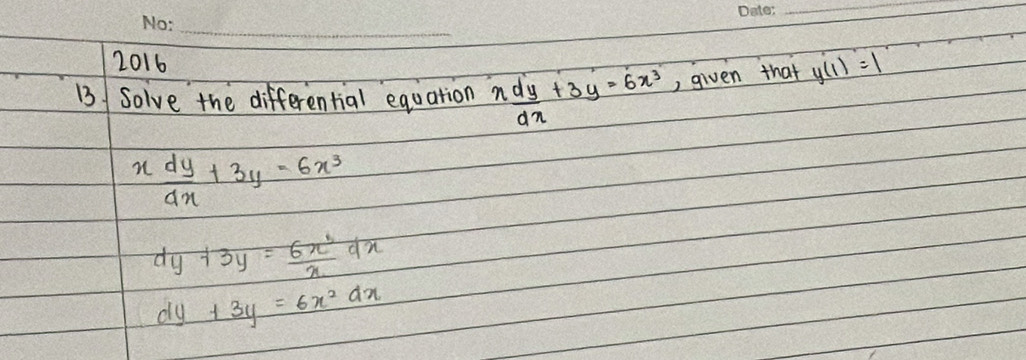 No:
Date:
2016
13. Solve the differential equation x dy/dx + 3y = 6x³, given that y(1) = 1
x dy/dx + 3y = 6x³
dy + 3y = 6x³/x dx
dy + 3y = 6x² dx